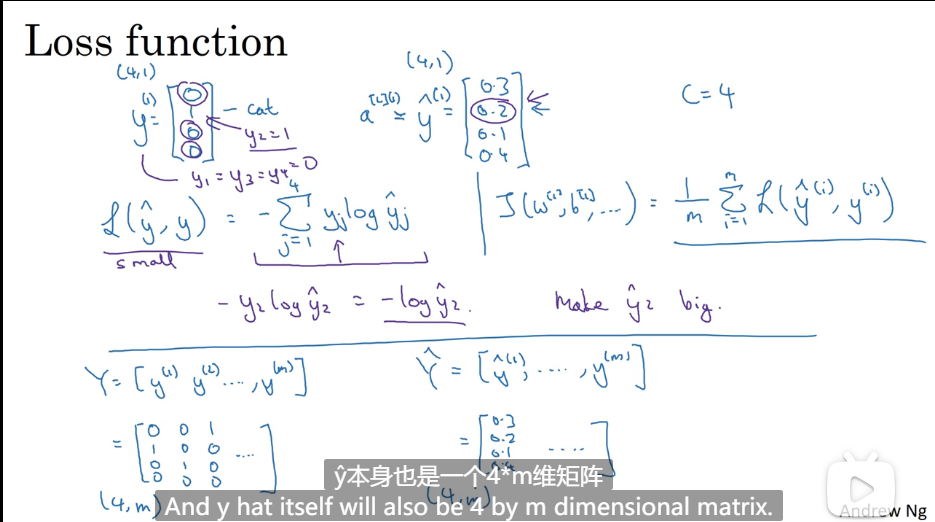 Loss function
(4,1)
y^(1) = [0 1 0 0] - cat
y₂=1
y₁ = y₃ = y₄ = 0
(4,1)
a^[L](1) = ŷ^(1) = [0.3 0.2 0.1 0.4]
C=4
L(ŷ, y) = - Σ_{j=1}^{4} yⱼ log ŷⱼ
small
J(w^[1], b^[1], ...) = 1/m Σ_{i=1}^{m} L(ŷ^(i), y^(i))
- y₂ log ŷ₂ = -log ŷ₂. Make ŷ₂ big.
Y = [y^(1) y^(2) ...., y^(m)]
Ŷ = [ŷ^(1), ...., y^(m)]
= [0 0 1
1 0 0 ....
0 1 0
0 0 0]
(4,m)
= [0.3
0.2
0.1 ....
0.4]
(4,m)
ŷ本身也是一个4*m维矩阵
And y hat itself will also be 4 by m dimensional matrix.
Andrew Ng